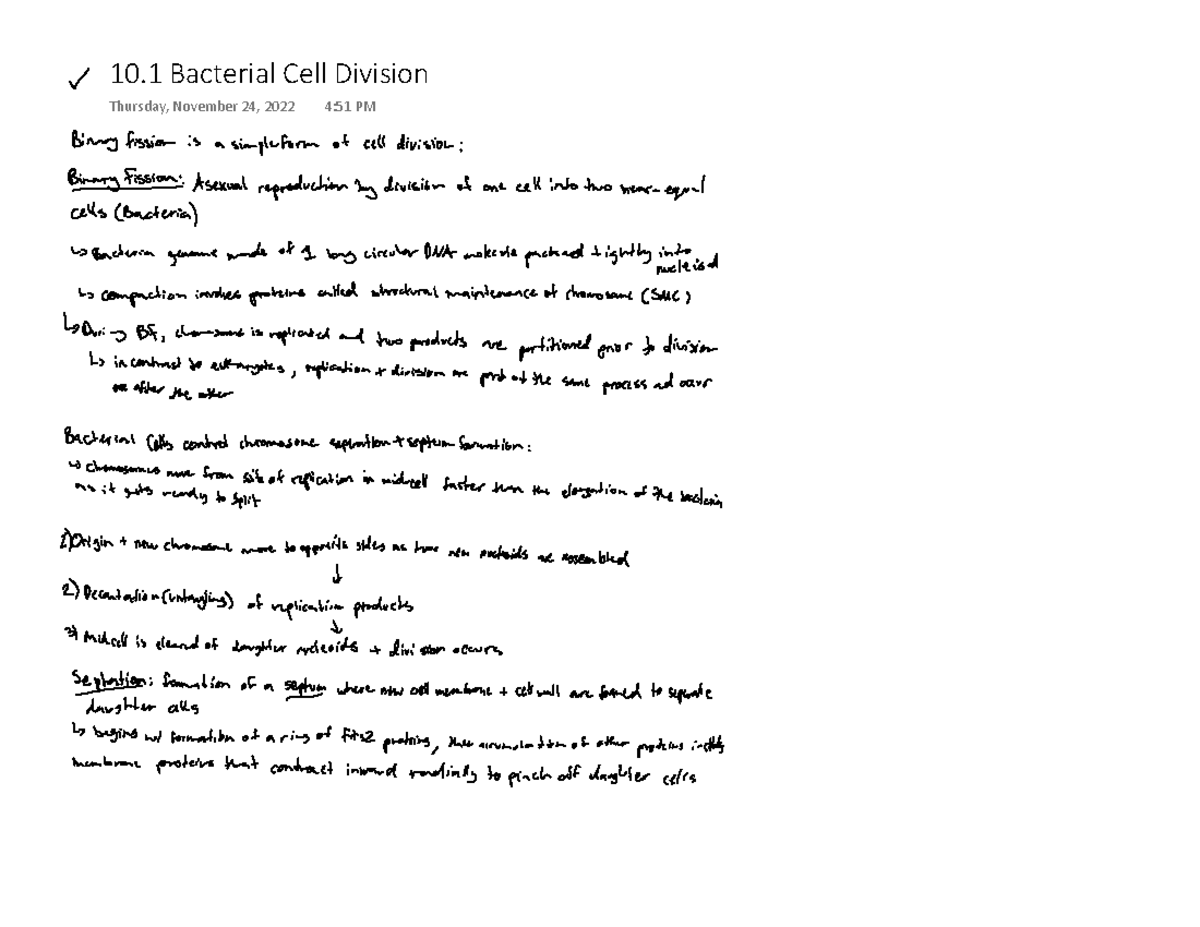 ✓ 10.1 Bacterial Cell Division
Thursday, November 24, 2022 4:51 PM
Binary fission is a simple form of cell division:
Binary Fission: Asexual reproduction by division of one cell into two near-equal
cells (Bacteria)
↳ Bacteria genome made of 1 long circular DNA molecule packed tightly into
nucleoid
↳ compaction involves proteins called structural maintenance of chromosome (SMC)
↳ During BF, chromosome is replicated and two products are partitioned prior to division
↳ in contrast to eukaryotes, replication + division are part of the same process and occur
one after the other
Bacterial Cells control chromosome separation + septum formation:
↳ chromosomes move from site of replication in midcell faster than the elongation of the bacteria
as it gets ready to split
1) Origin + new chromosome move to opposite sides as two new nucleoids are assembled
↓
2) Decantation (untangling) of replication products
↓
3) Midcell is cleared of daughter nucleoids + division occurs
Septation: formation of a septum where new cell membrane + cell wall are formed to separate
daughter cells
↳ begins w/ formation of a ring of FtsZ proteins, then accumulation of other proteins
membrane proteins that contract inward radially to pinch off daughter cells